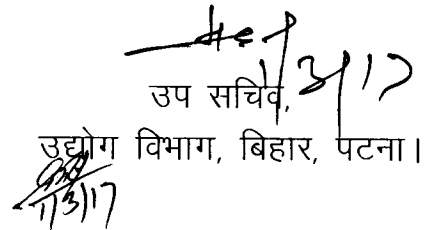 उप सचिव,
उद्योग विभाग, बिहार, पटना।
1/3/17